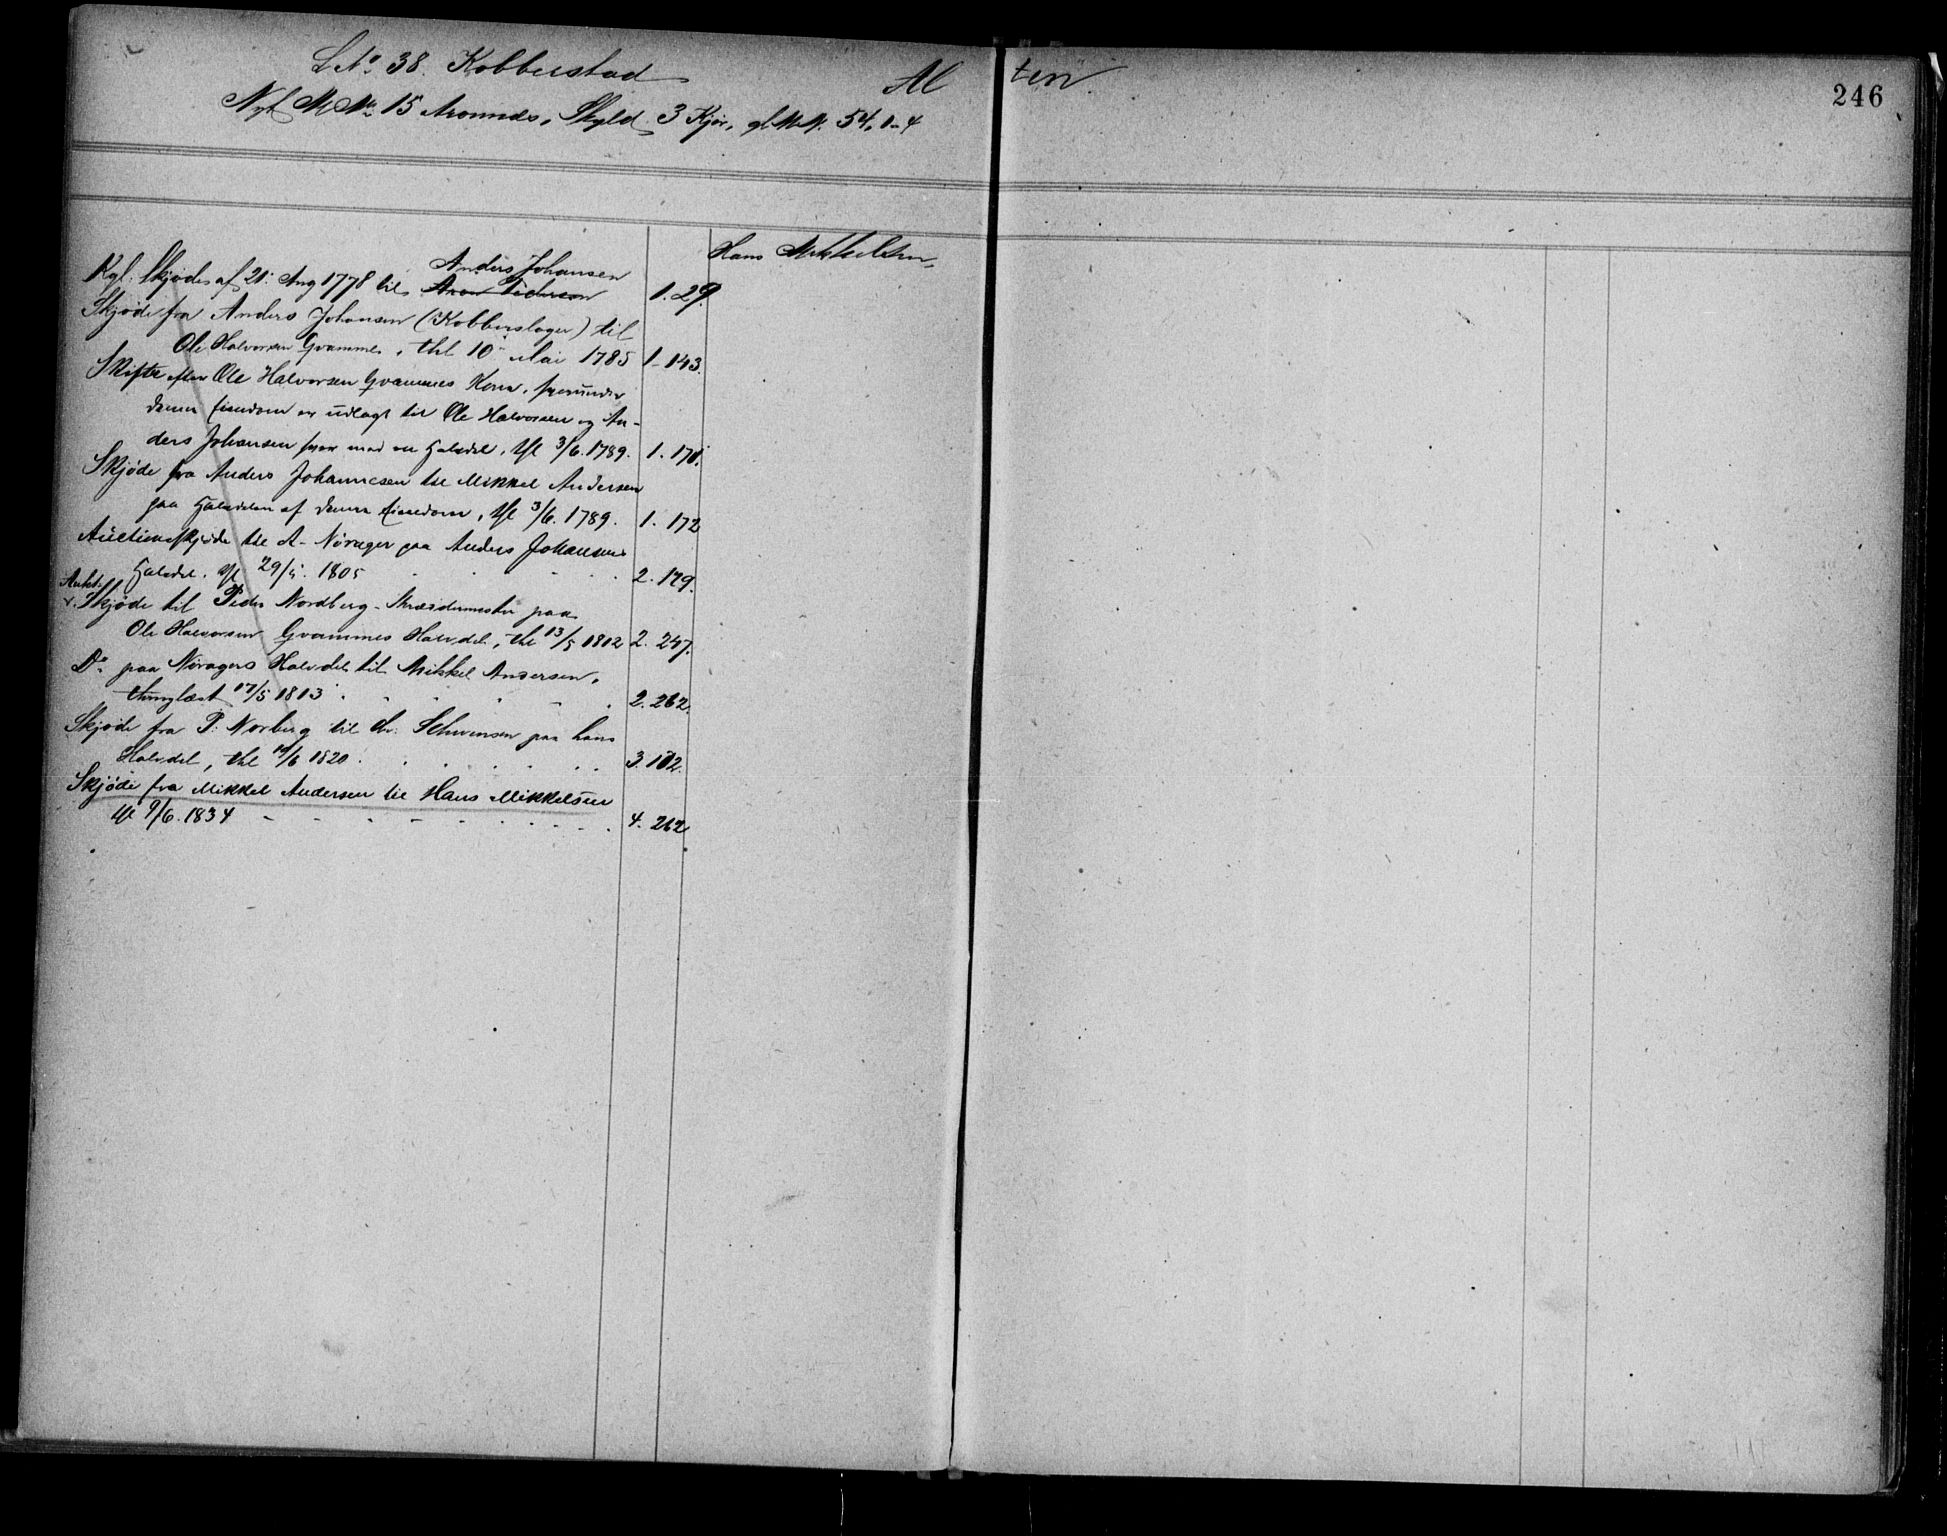 L No 38. Kobberstad
Al ten.
246
Nyt M No 15 Aronnes, Skyld 3 Kjør, gl. M. N. 54, 1-4
Hans Mikkelsen.
Anders Johansen
Kgl. Skjøde af 21. Aug 1778 til Aron Pedersen 1. 29.
Skjøde fra Anders Johansen (Kobberslager) til
Ole Halvorsen Gvammes, thl 10 Mai 1785 1-143.
Skifte efter Ole Halvorsen Gvammes Kone, hvorunder
denne Eiendom er udlagt til Ole Halvorsen og An-
ders Johansen hver med en Halvdel, thl 3/6. 1789. 1. 171.
Skjøde fra Anders Johannesen til Mikkel Andersen
paa Halvdelen af denne Eiendom, thl 3/6. 1789. 1. 172
Auctionsskjøde til A. Nørager paa Anders Johansens
Halvdel. thl 29/5. 1805 2. 179.
Aukt.
Skjøde til Peder Nordberg Skræddermester paa
Ole Halvorsen Gvammes Halvdel, thl 13/5 1812 2. 247.
Do paa Nøragers Halvdel til Mikkel Andersen,
thinglæst 17/5 1813 2. 262.
Skjøde fra P. Norberg til Chr. Schwensen paa hans
Halvdel, thl 19/6 1820. 3. 102.
Skjøde fra Mikkel Andersen til Hans Mikkelsen
thl 9/6. 1834 4. 262